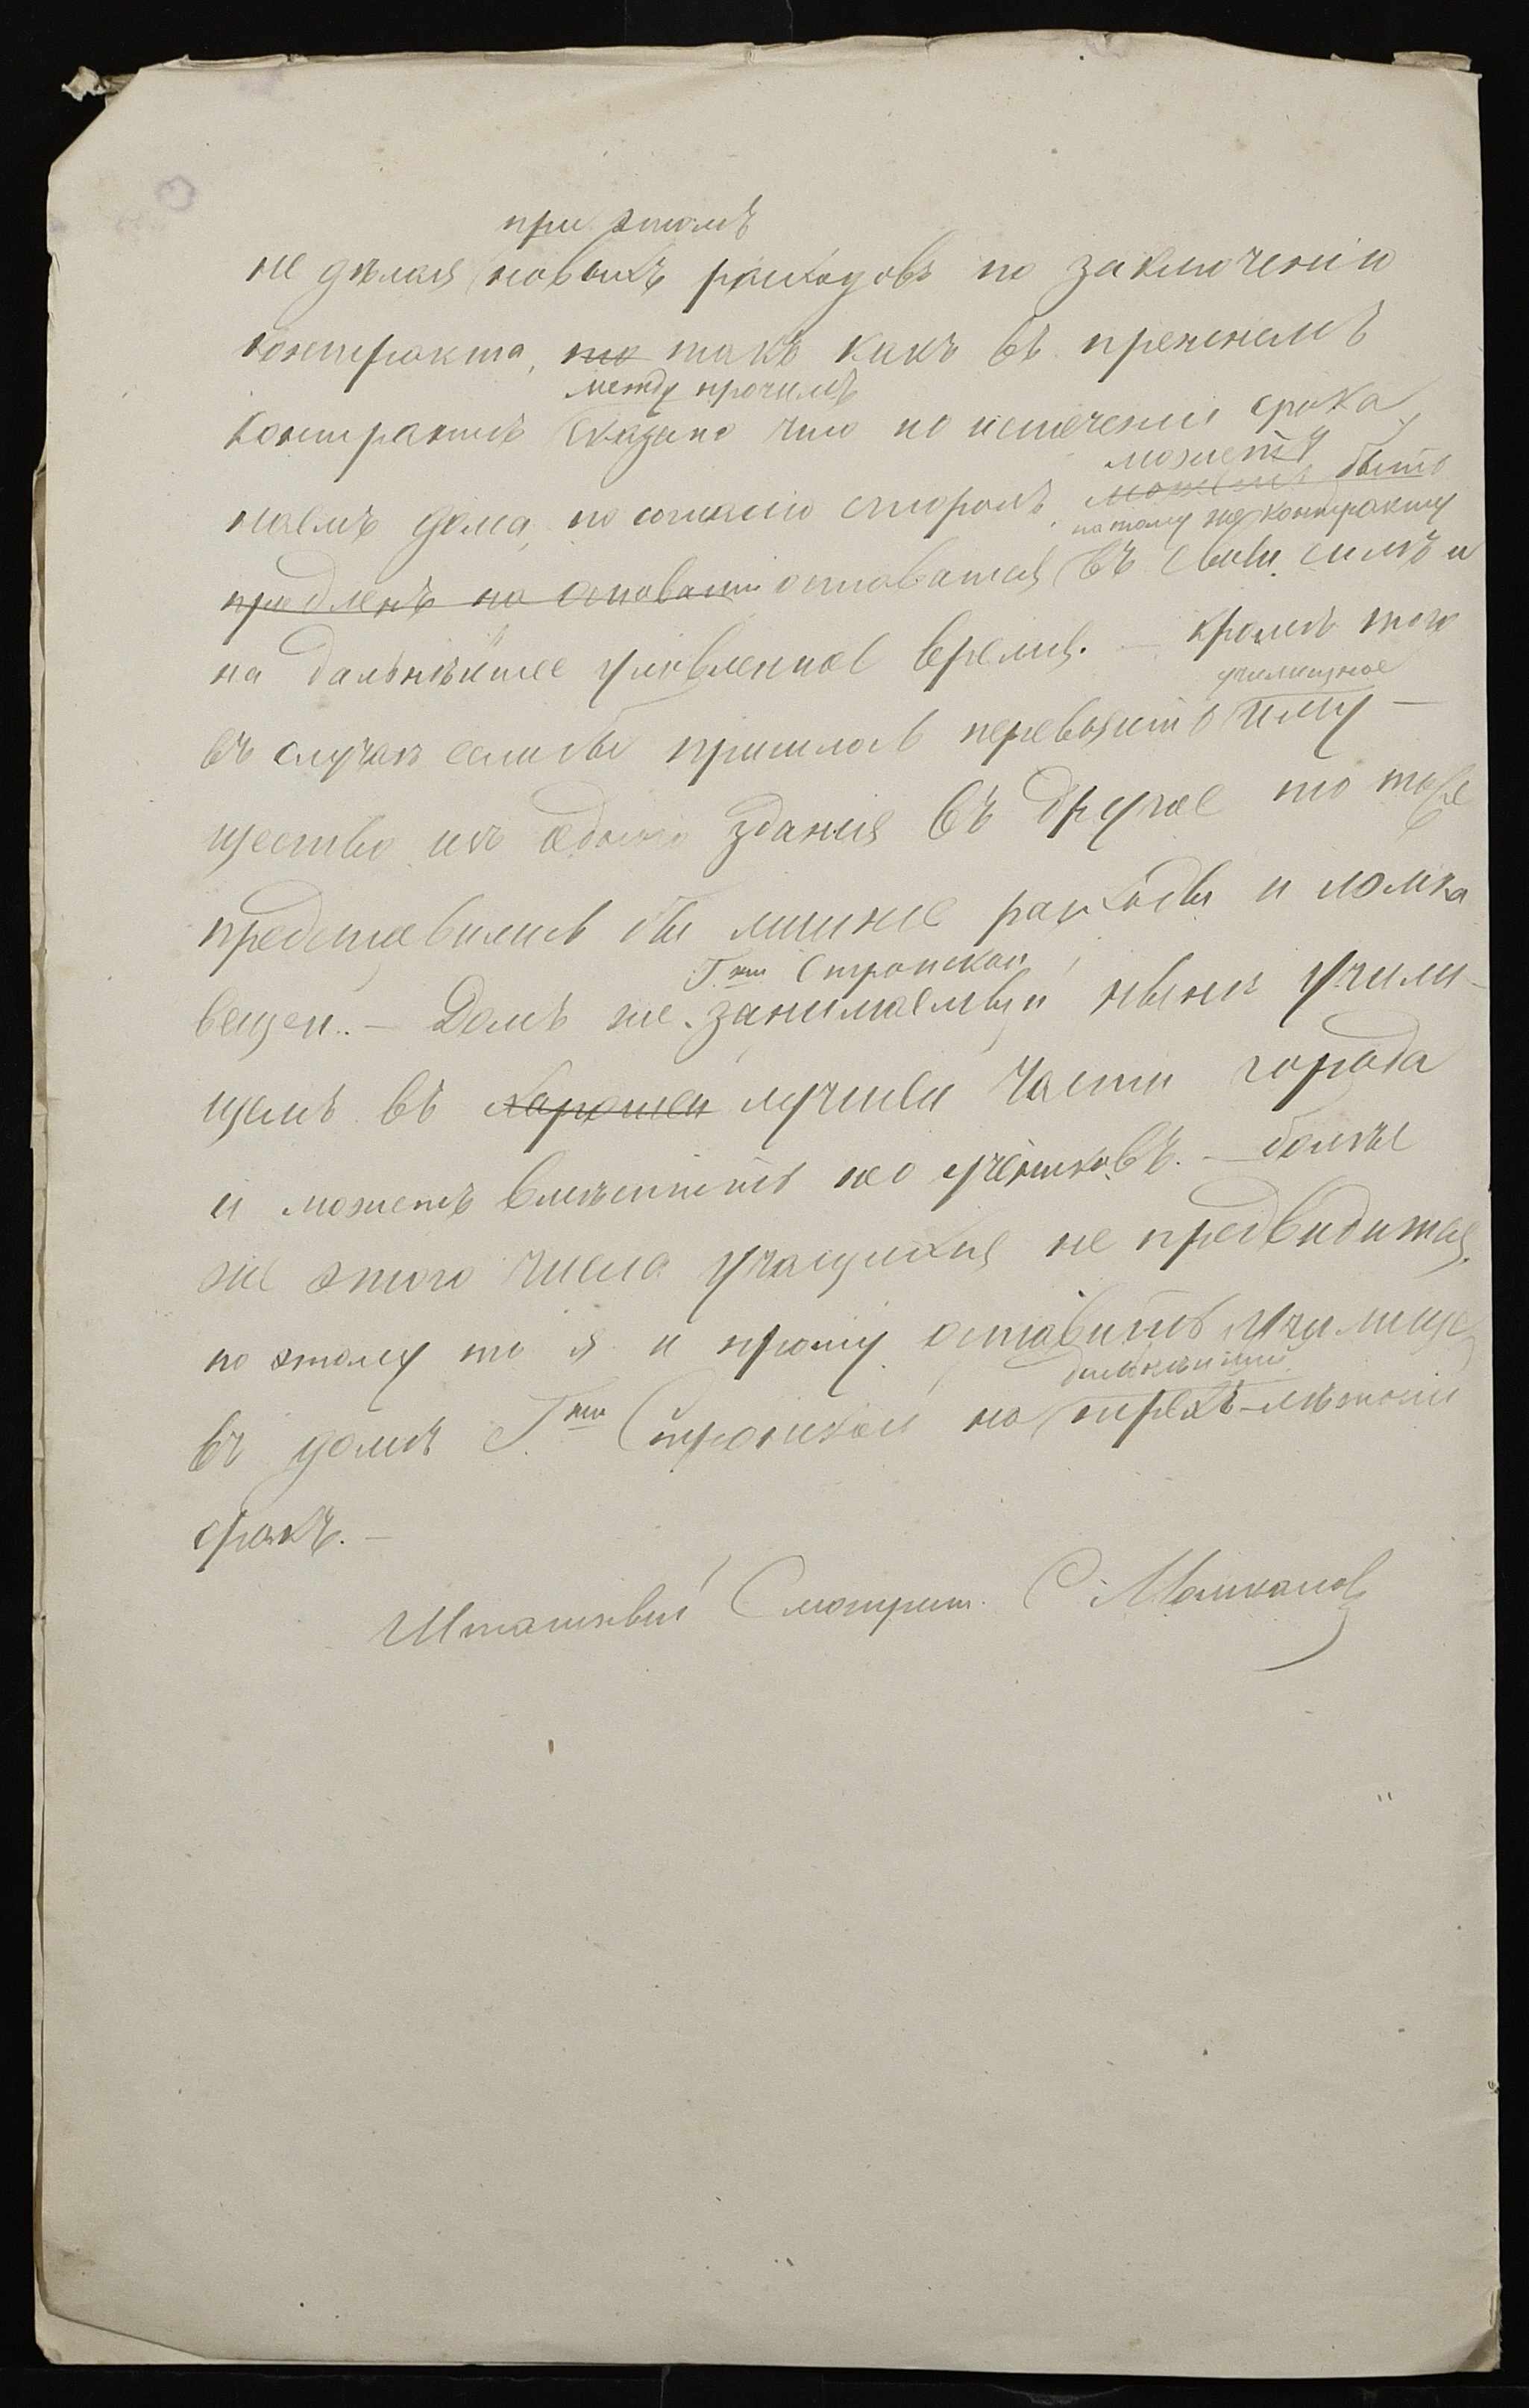 при этомъ
не дѣлая новыхъ расходовъ по заключенію
контракта, то такъ какъ въ прежнемъ
между прочимъ
контрактѣ сказано что по истеченіи срока,
можетъ
наемъ дома, по согласію сторонъ можетъ быть
по тому же контракту
продленъ на основаніи оставаться въ своей силѣ и
на дальнѣйшее условленное время. — Кромѣ того
училищное
въ случаѣ если бы пришлось перевозить иму-
щество изъ одного зданія въ другое то тоже
представились бы лишніе расходы и ломка
Г-жи Стронской
вещей. — Домъ же занимаемый нынѣ учили-
щемъ въ хорошей лучшей части города
и можетъ вмѣстить учениковъ. — Болѣе
же этого числа учащихся не предвидится,
по этому то я и прошу оставить училище
ближайшій
въ домѣ Г-жи Стронской на трехъ-лѣтній
срокъ. —
Штатный Смотрит. С Машкановъ